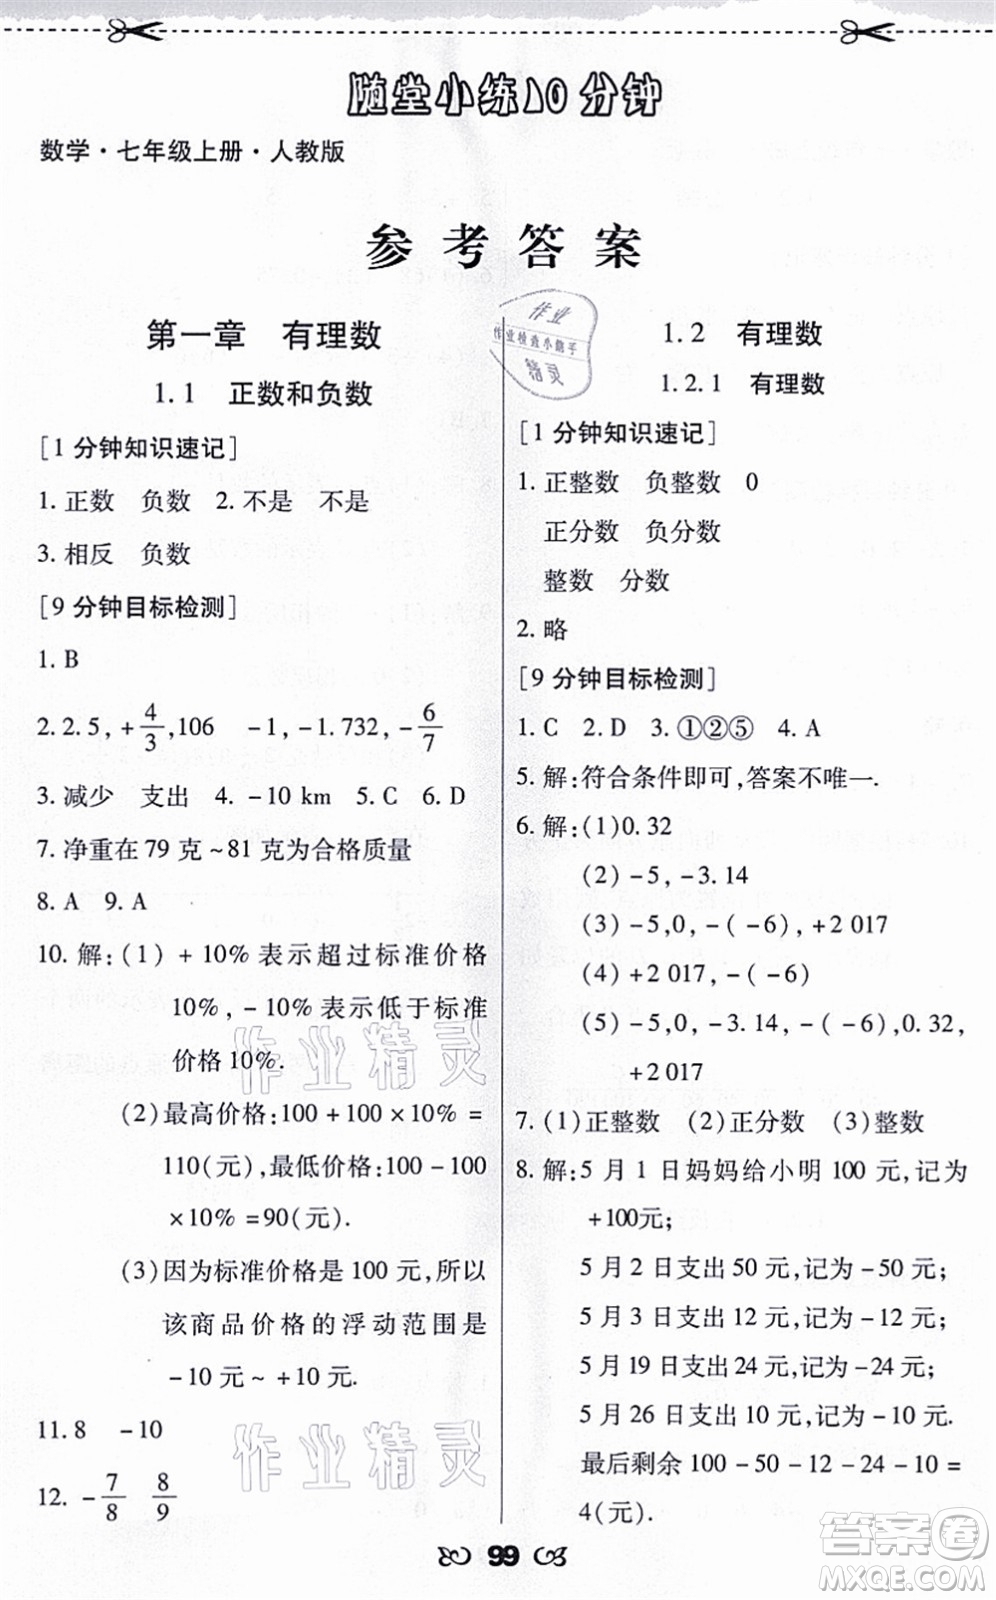 随堂小练10分钟
数学·七年级上册·人教版
参考答案
第一章 有理数
1.1 正数和负数
[1分钟知识速记]
1. 正数 负数 2. 不是 不是
3. 相反 负数
[9分钟目标检测]
1. B
2. 2.5, +4/3, 106 -1, -1.732, -6/7
3. 减少 支出 4. -10 km 5. C 6. D
7. 净重在79克~81克为合格质量
8. A 9. A
10. 解:(1) +10%表示超过标准价格
10%, -10%表示低于标准
价格10%.
(2)最高价格:100+100×10%=
110(元),最低价格:100-100
×10%=90(元).
(3)因为标准价格是100元,所以
该商品价格的浮动范围是
-10元~+10元.
11. 8 -10
12. -7/8 8/9
1.2 有理数
1.2.1 有理数
[1分钟知识速记]
1. 正整数 负整数 0
正分数 负分数
整数 分数
2. 略
[9分钟目标检测]
1. C 2. D 3. ①②⑤ 4. A
5. 解:符合条件即可,答案不唯一.
6. 解:(1)0.32
(2)-5, -3.14
(3)-5,0, -(-6), +2 017
(4)+2 017, -(-6)
(5)-5, -3.14, -(-6),0.32,
+2 017
7. (1)正整数 (2)正分数 (3)整数
8. 解:5月1日妈妈给小明100元,记为
+100元;
5月2日支出50元,记为-50元;
5月3日支出12元,记为-12元;
5月19日支出24元,记为-24元;
5月26日支出10元,记为-10元.
最后剩余100-50-12-24-10=
4(元).
99
作业
作业检查小助手
精灵
作业精灵
作业精灵
答案卷
MXQE.COM